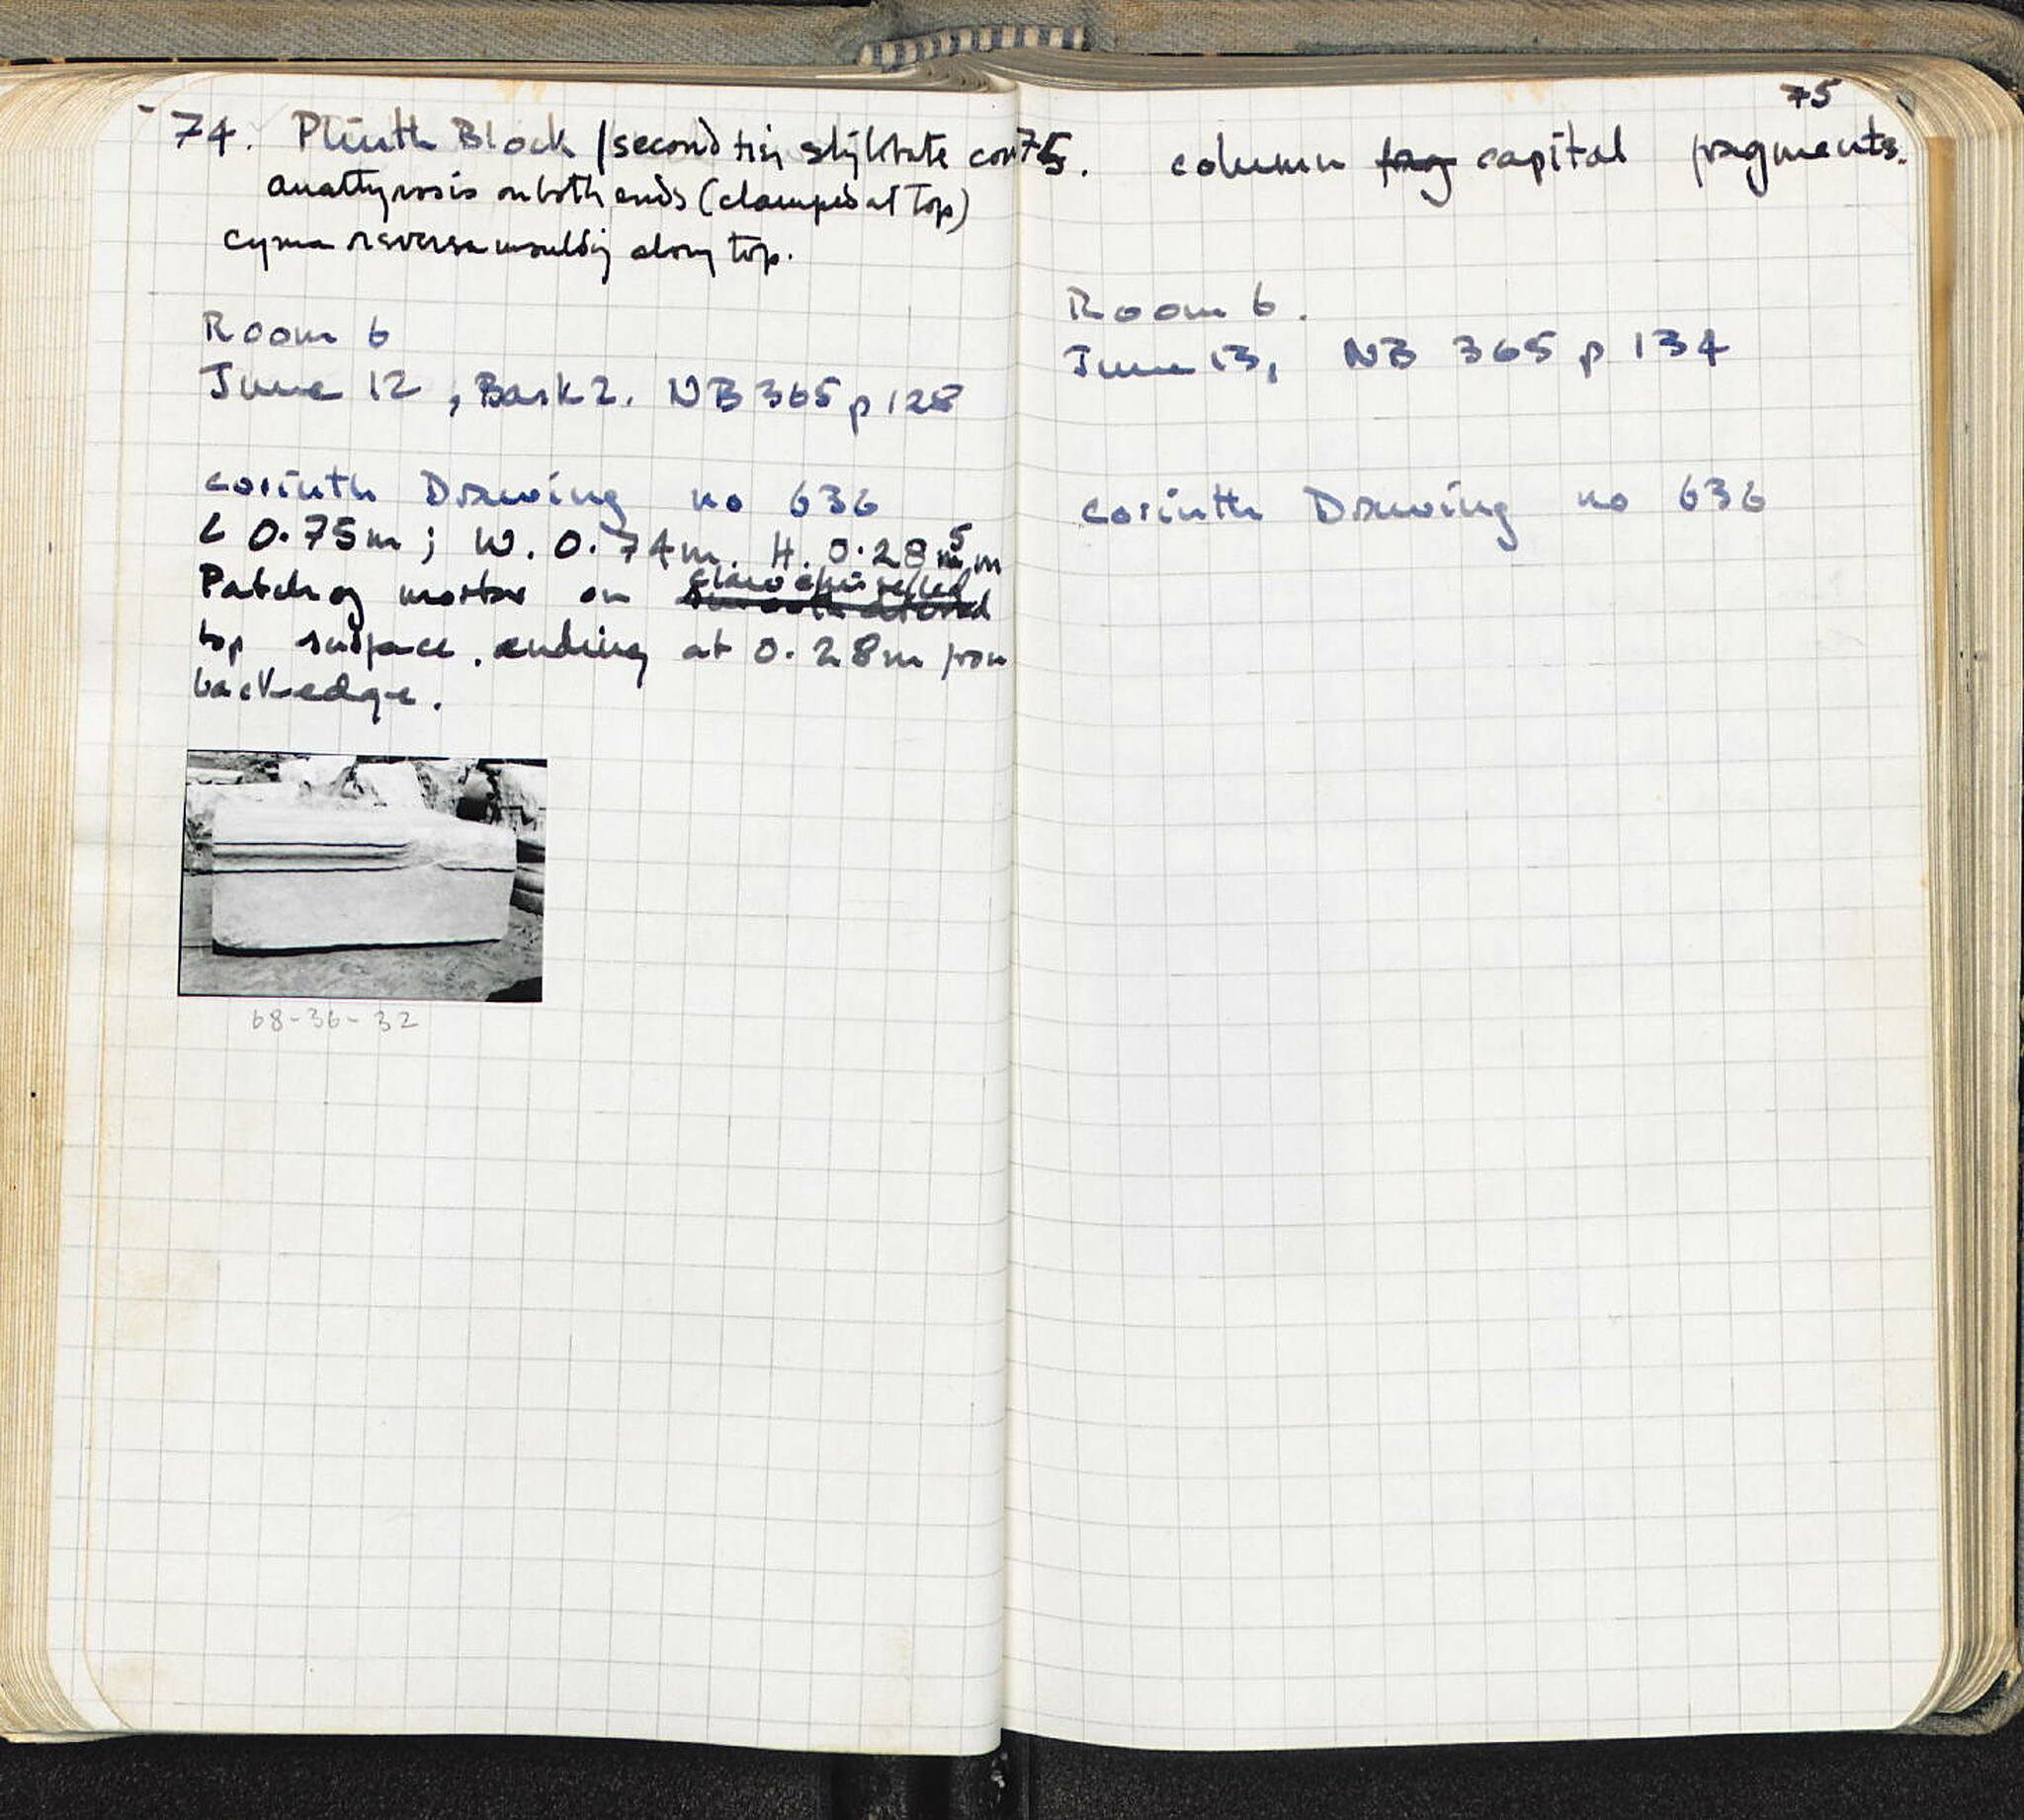 74. Plinth Block / second tier stylobate cour
anathyrosis on both ends (clamped at top)
cyma reversa moulding along top.
Room 6
June 12, Bask 2. NB 365 p 128
Corinth Drawing no 636
L 0.75m; W. 0.74m. H. 0.28 5 m
claw chiselled
Patch of mortar on
top surface. ending at 0.28m from
back edge.
68-36-32
75
75. column frag capital fragments.
Room 6.
June 13, NB 365 p 134
Corinth Drawing no 636